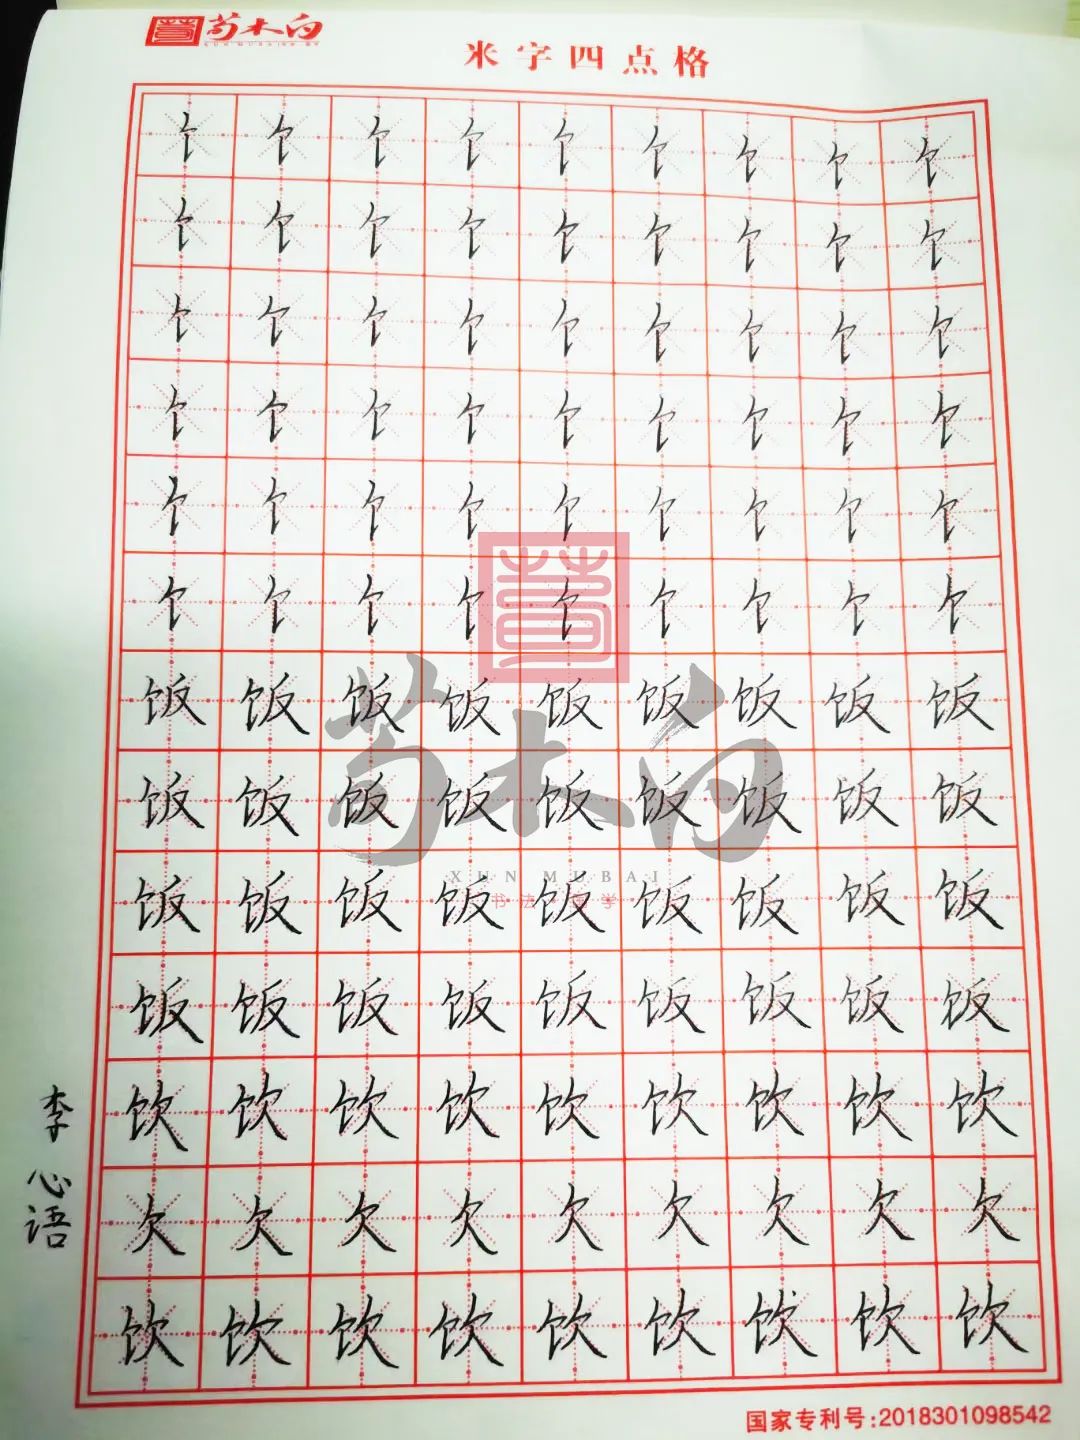 荀木白
XUNMUBAI
米字四点格
饣饣饣饣饣饣饣饣饣
饣饣饣饣饣饣饣饣饣
饣饣饣饣饣饣饣饣饣
饣饣饣饣饣饣饣饣饣
饣饣饣饣饣饣饣饣饣
饣饣饣饣饣饣饣饣饣
饭饭饭饭饭饭饭饭饭
饭饭饭饭饭饭饭饭饭
饭饭饭饭饭饭饭饭饭
饭饭饭饭饭饭饭饭饭
饮饮饮饮饮饮饮饮饮
欠欠欠欠欠欠欠欠欠
饮饮饮饮饮饮饮饮饮
李心语
荀木白
XUN MUBAI
国家专利号:2018301098542